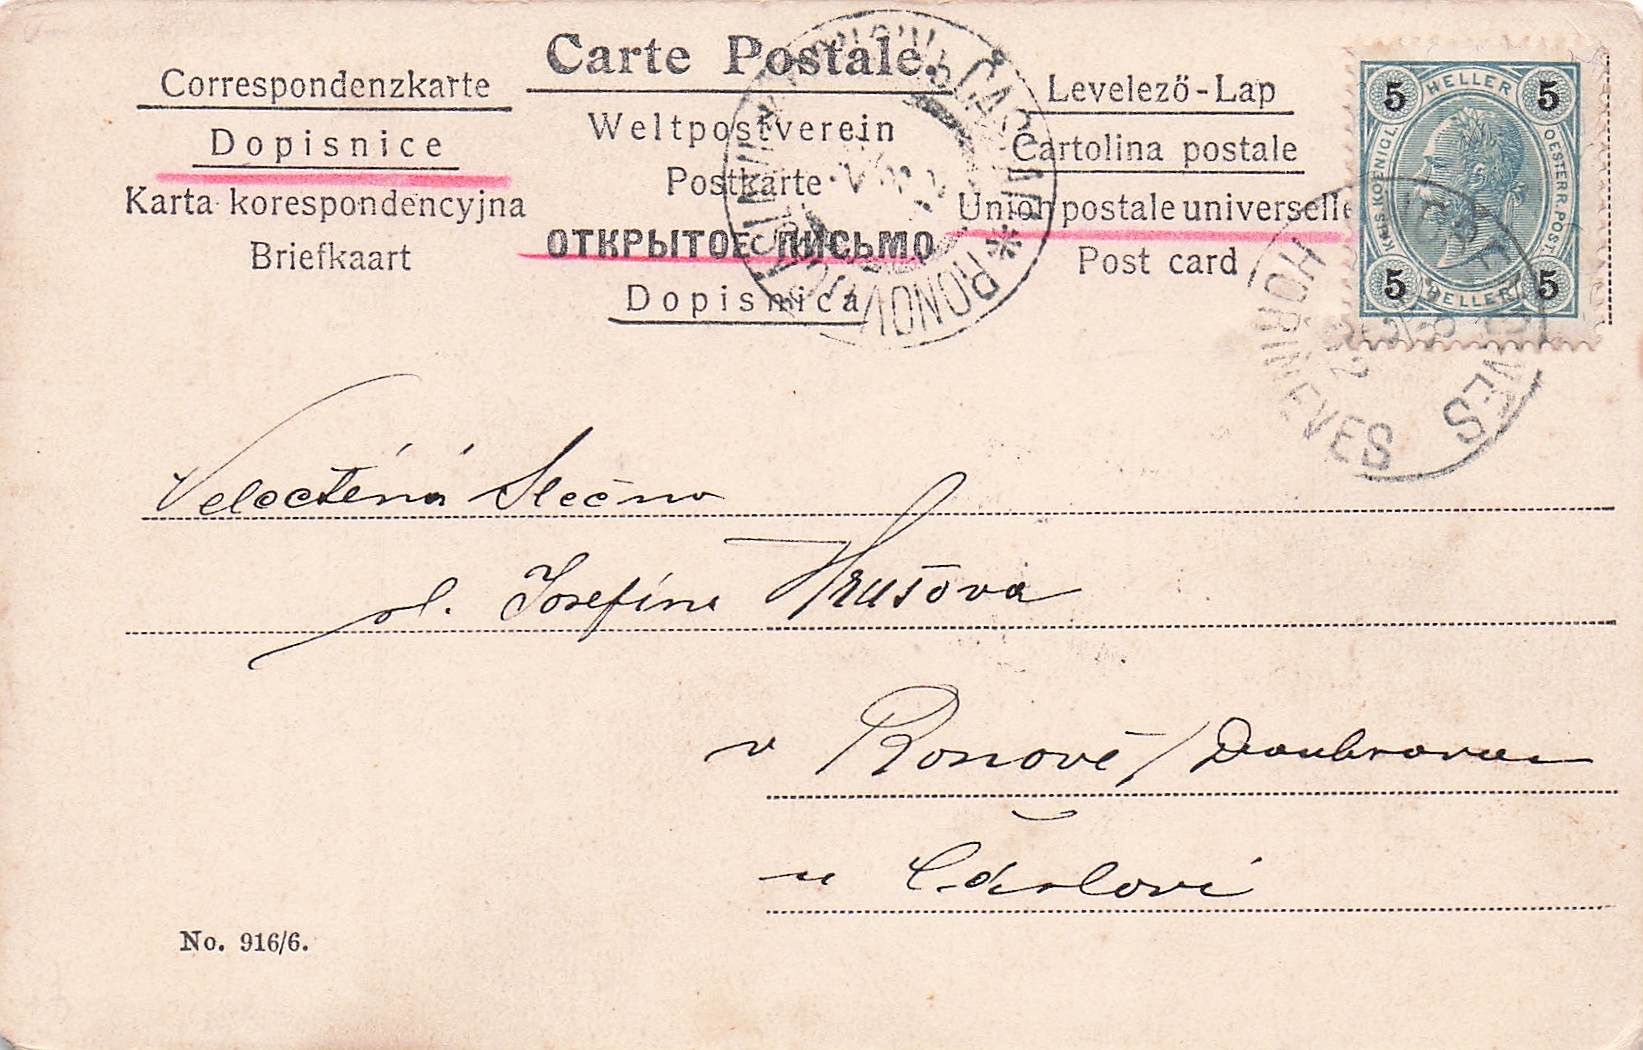 Carte Postale.
Correspondenzkarte
Dopisnice
Karta korespondencyjna
Briefkaart
Weltpostverein
Postkarte
ОТКРЫТОЕ ПИСЬМО
Dopisnica
Levelező-Lap
Cartolina postale
Union postale universelle
Post card
5 HELLER 5
KAIS. KOENIGL. OESTERR. POST
5 HELLER 5
HOŘINĚVES
RONOV
Velectěná Slečna
sl. Josefina Hrušova
v Ronově/Doubravou
u Čáslavi
No. 916/6.